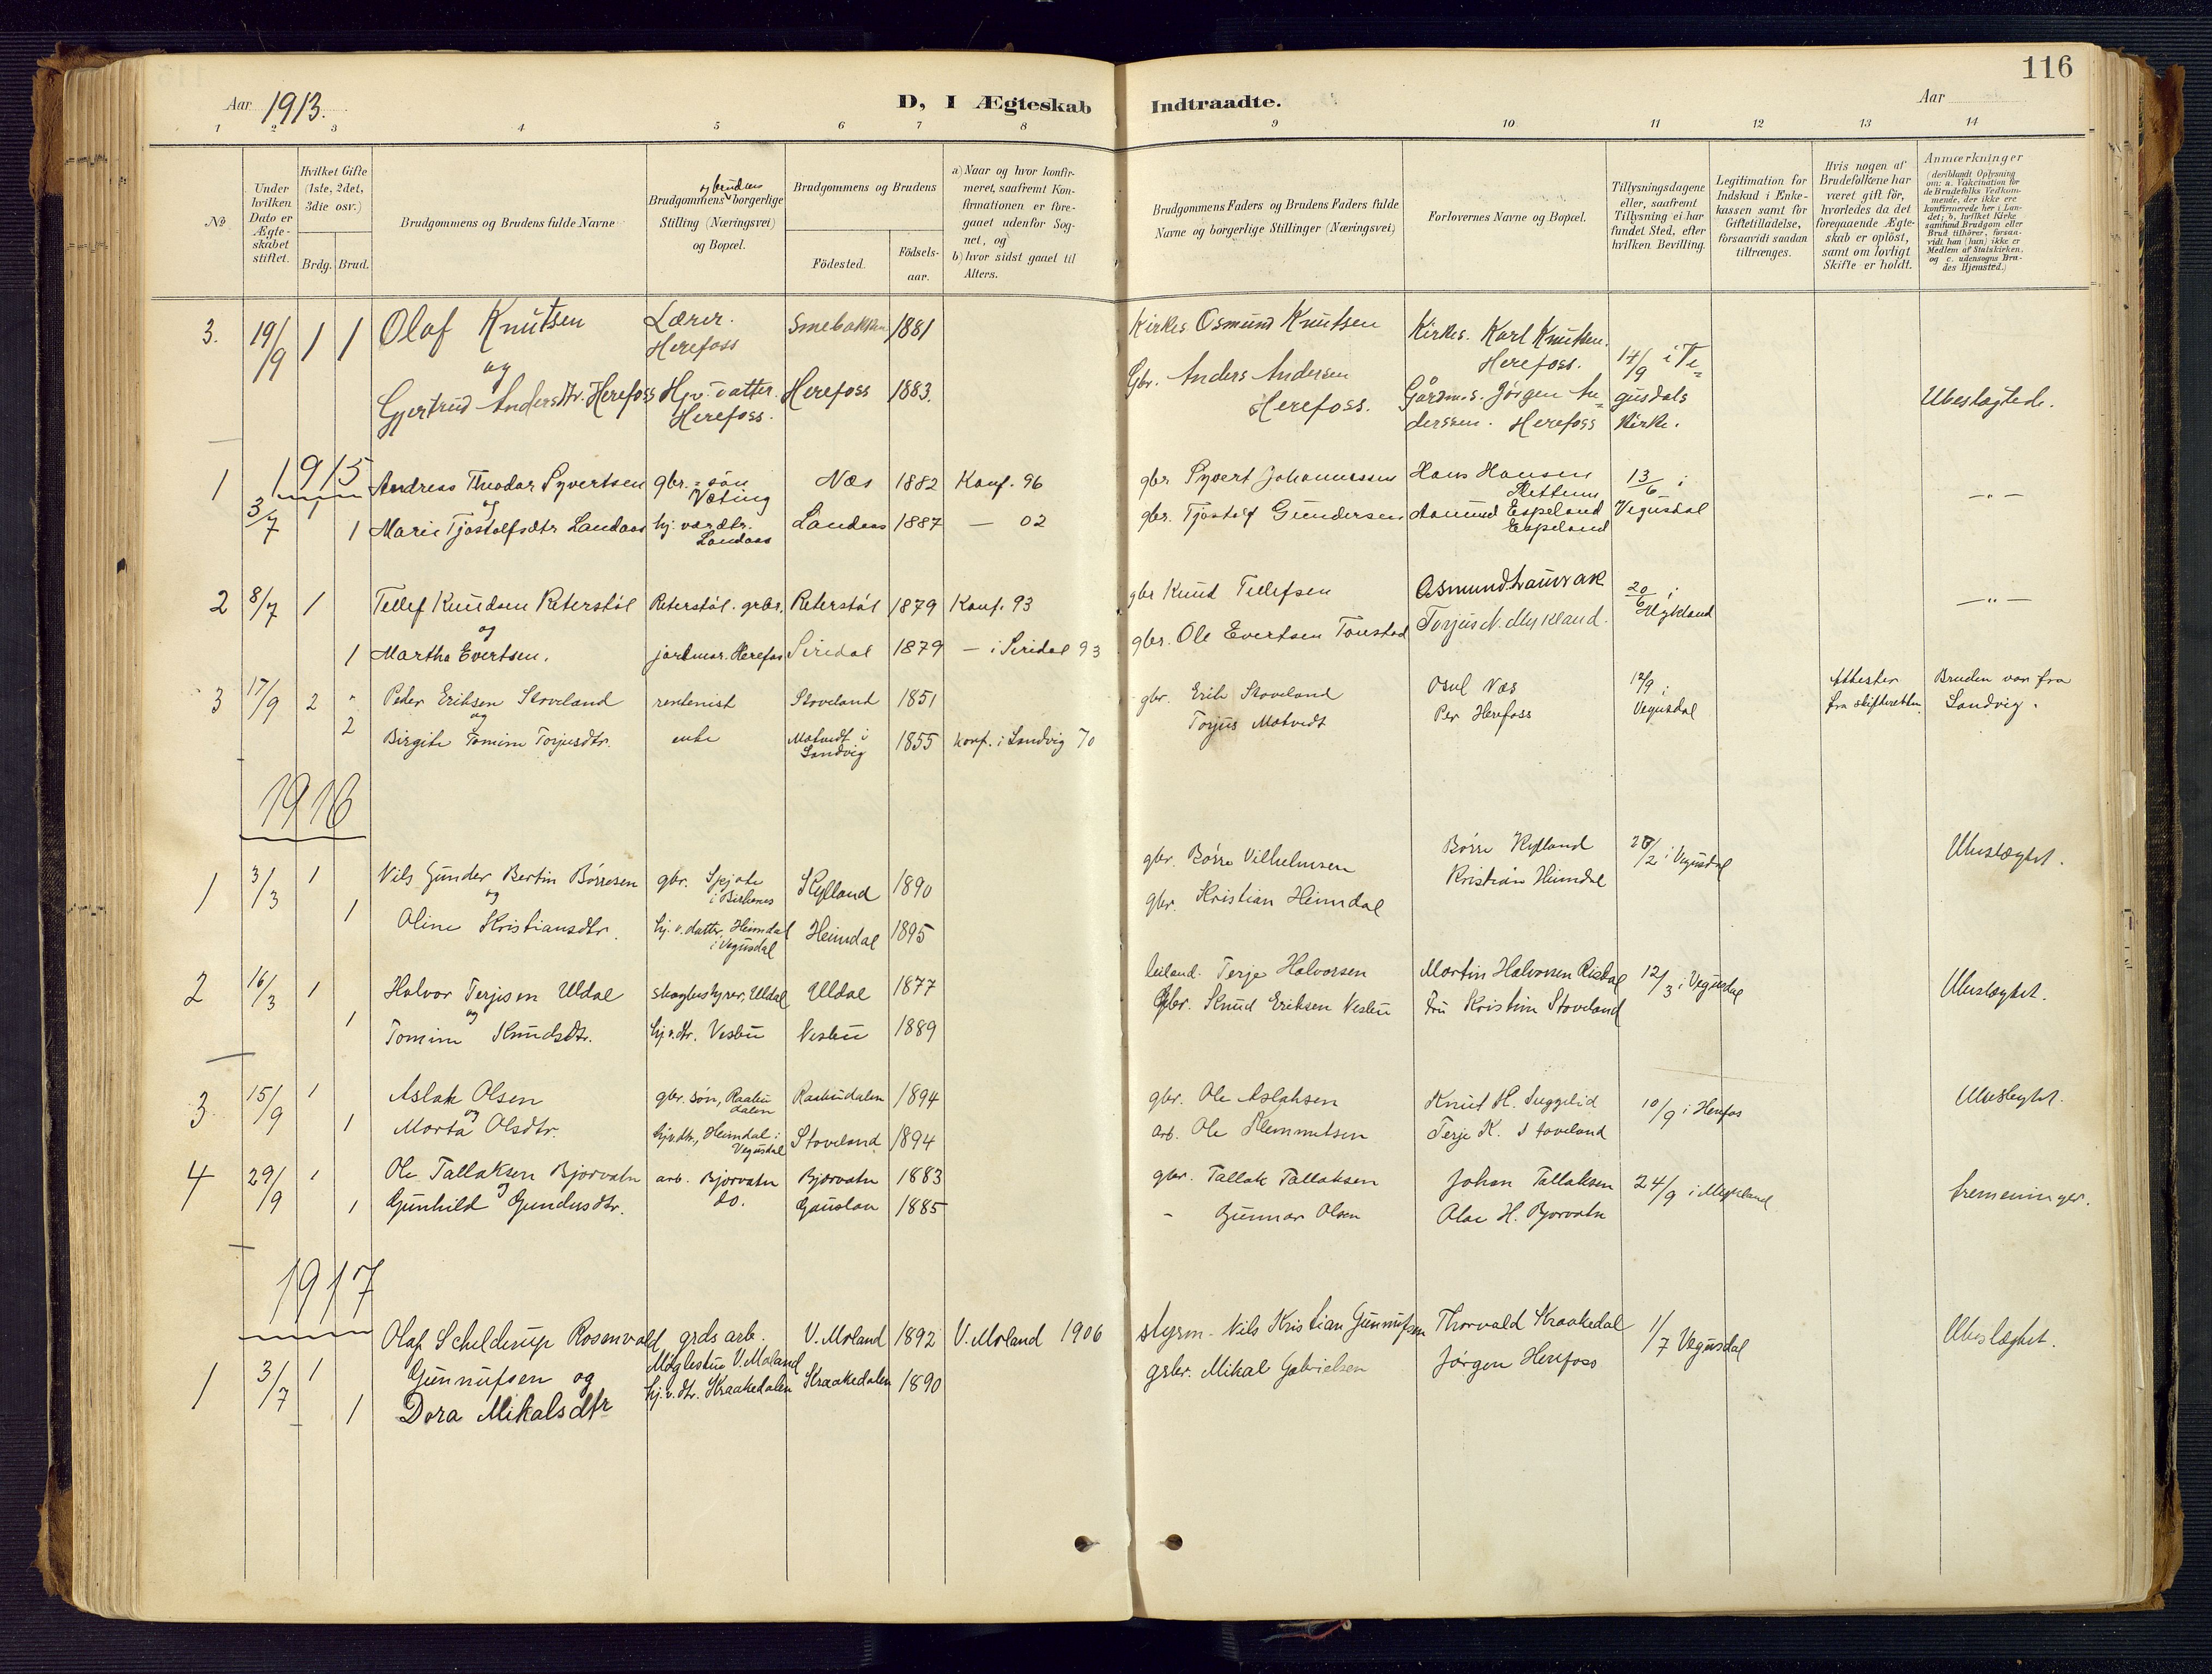 116
Aar 1913.
D, I Ægteskab Indtraadte.
Aar
1 2 3 4 5 6 7 8 9 10 11 12 13 14
No
Under hvilken Dato er Ægteskabet stiftet.
Hvilket Gifte (1ste, 2det, 3die osv.)
Brdg. Brud.
Brudgommens og Brudens fulde Navne
Brudgommens og brudens borgerlige Stilling (Næringsvei) og Bopæl.
Brudgommens og Brudens
Fødested.
Fødselsaar.
a) Naar og hvor konfirmeret, saafremt Konfirmationen er foregaaet udenfor Sognet, og
b) hvor sidst gaaet til Alters.
Brudgommens Faders og Brudens Faders fulde Navne og borgerlige Stillinger (Næringsvei)
Forlovernes Navne og Bopæl.
Tillysningsdagene eller, saafremt Tillysning ei har fundet Sted, efter hvilken Bevilling.
Legitimation for Indskud i Enkekassen samt for Giftetilladelse, forsaavidt saadan tiltrænges.
Hvis nogen af Brudefolkene har været gift før, hvorledes da det foregaaende Ægteskab er opløst, samt om lovligt Skifte er holdt.
Anmærkninger (deriblandt Oplysning om: a. Vakcination for de Brudefolks Vedkommende, der ikke ere konfirmerede her i Landet; b. hvilket Kirkesamfund Brudgom eller Brud tilhører, forsaavidt han (hun) ikke er Medlem af Statskirken, og c. udensogns Brudes Hjemsted.)
3. 19/9 1 1 Olaf Knutsen Lærer. Herefoss Smebakken 1881 Kirkes. Osmund Knutsen Kirkes. Karl Knutsen. Herefoss. 14/9 i Ve=
og
Gjertrud Andersdtr. Herefoss Hjv. datter. Herefoss. Herefoss 1883. Gbr. Anders Andersen Herefoss. Gårdm.s. Jørgen An=derssen. Herefoss gusdals Kirke. Ubeslægtede.
1915
1 3/7 1 Andreas Theodor Syvertsen gbr.=søn Væting Næs 1882 Konf. 96 gbr Syvert Johannessen Hans Hansen Rettum 13/6 i — " —
og
1 Marie Tjøstolfsdtr Landaas hj. vær.dtr. Landaas Landaas 1887 — 02 gbr. Tjøstolf Gundersen Aanund Espeland Espeland Vegusdal
2 8/7 1 Tellef Knudsen Reterstøl Reterstøl. grbr. Reterstøl 1879 Konf. 93 gbr Knud Tellefsen Osmund Lauvrak 20/6 i Mykland — " —
og
1 Martha Evertsen. jordmor. Herefos Siridal 1879 — i Siridal 93 gbr. Ole Evertsen Tonstad Torjus N. Mykland.
3 17/9 2 " Peder Eriksen Stoveland rentenist Stoveland 1851 gbr. Erik Stoveland Osul Næs 12/9 i Vegusdal Attester fra skifteretten Bruden var fra Landvig.
og
2 Birgite Tomine Torjusdtr. enke Molvedt i Landvig 1855 konf. i Landvig 70 Torjus Molvedt Per Herefoss
1916
1 3/3 1 Nils Gunder Bertin Børresen gbr. i Birkenes Kylland 1890 gbr. Børre Vilhelmsen Børre Kylland 28/2 i Vegusdal Ubeslægtet.
og
1 Oline Kristiansdtr. hj. v. datter, Heimdal i Vegusdal Heimdal 1895 gbr. Kristian Heimdal Kristian Heimdal
2 16/3 1 Halvor Terjesen Uldal skogbestyrer, Uldal Uldal 1877 leiland. Terje Halvorsen Martin Halvorsen Risdal 12/3 i Vegusdal Ubeslægtet.
og
1 Tomine Knudsdtr. hj.v.dtr. Vesbu Vesbu 1889 Gbr. Knud Eriksen Vesbu Fru Kristine Stoveland
3 15/9 1 Aslak Olsen gbr. søn, Raabudalen Raabudalen 1894 gbr. Ole Aslaksen Knut H. Suggelid 10/9 i Herefos Ubeslægtet.
og
1 Marta Olsdtr. hjv.dtr., Heimdal i Vegusdal Stoveland. 1894 arb. Ole Klemmetsen Terje K. Stoveland
4 29/9 1 Ole Tallaksen Bjorvatn arb. Bjorvatn Bjorvatn 1883 gbr. Tallak Tallaksen Johan Tallaksen 24/9 i Mykland tremeninger.
og
1 Gunhild Gundersdtr. do. Gauslaa 1885 - Gunnar Olsen Olav H. Bjorvatn
1917
1 3/7 1 Olaf Schelderup Rosenvald Gunnufsen og grds arb. Møglestue V. Moland V. Moland 1892 V. Moland 1906 styrm. Nils Kristian Gunnufsen Thorvald Kraakedal 1/7 Vegusdal Ubeslægtet.
1 Dora Mikalsdtr hj. v. dtr. Kraakedalen Kraakedalen 1890 grbr. Mikal Gabrielsen Jørgen Herefoss